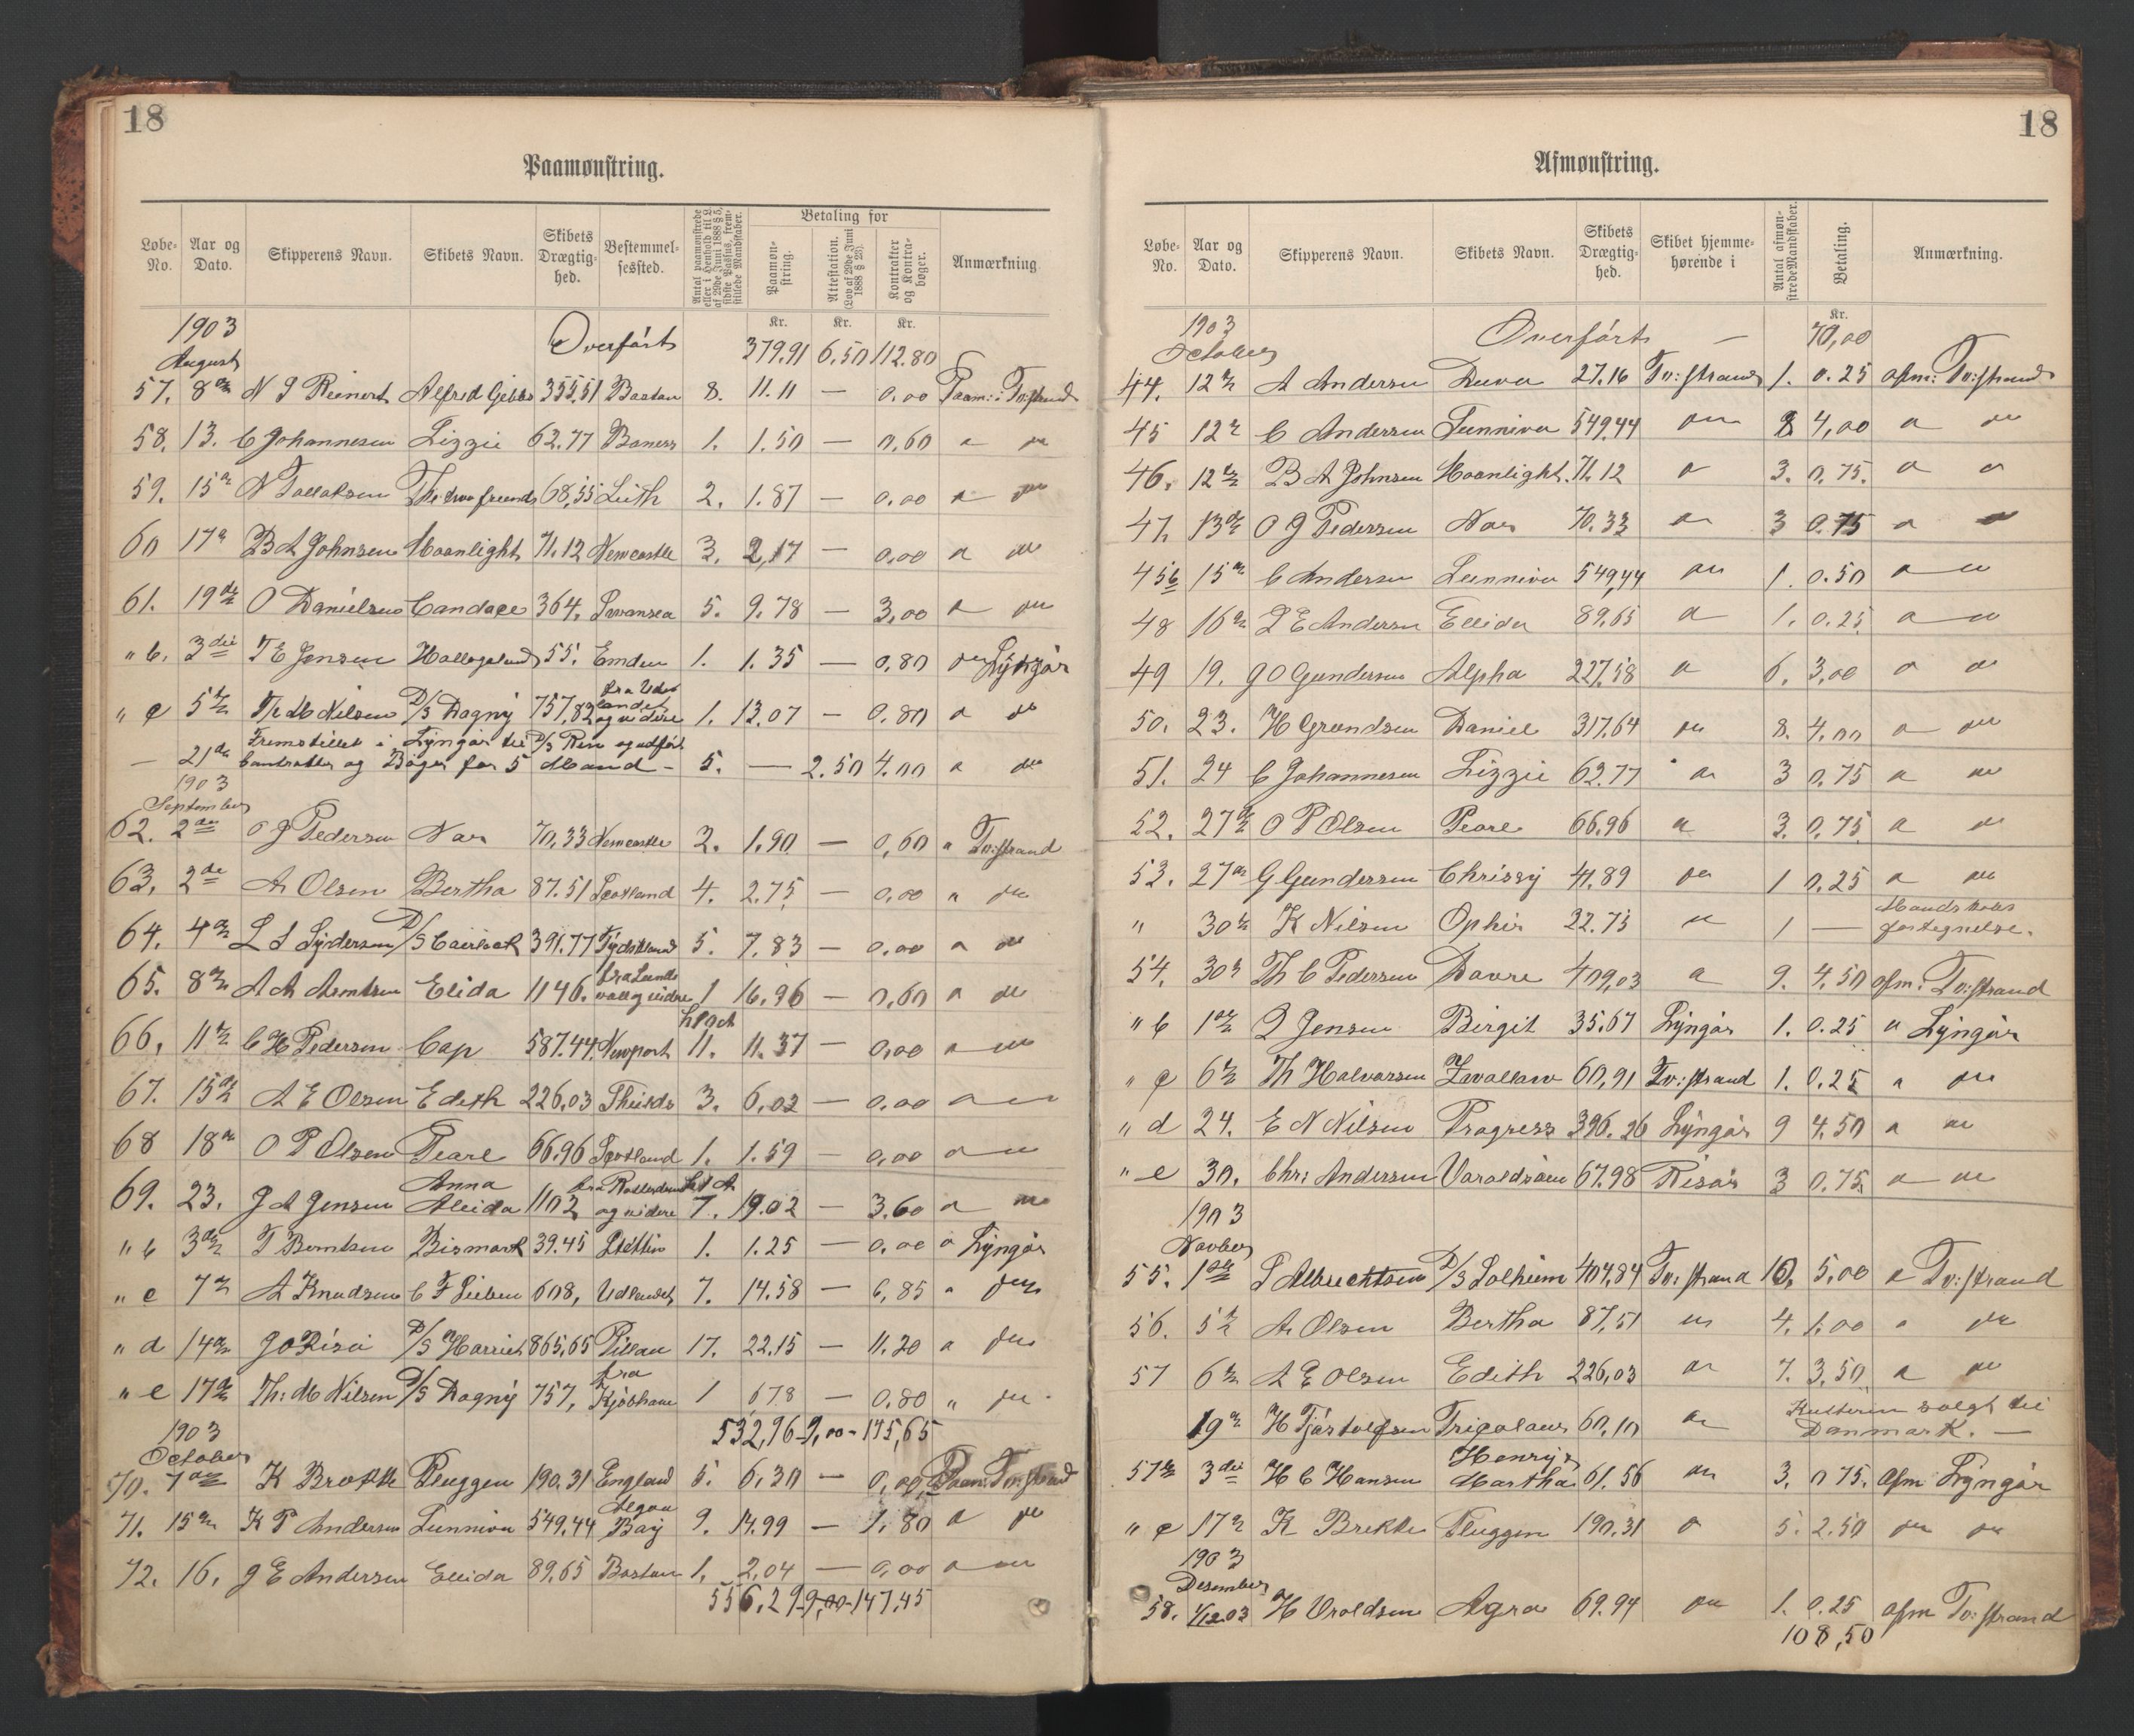 18
Paamønstring.
Løbe-No. Aar og Dato. Skipperens Navn. Skibets Navn. Skibets Drægtighed. Bestemmelsessted. Antal paamønstrede eller i Henhold til L. af 29de Juni 1888 § 5, sidste Passus, fremstillede Mandskaber. Betaling for Paamønstring. Attestation. (Lov af 29de Juni 1888 § 23). Kontrakter og Kontrabøger. Anmærkning
Kr. Kr. Kr.
1903 Overførts 379,91 6,50 112.80
August
57. 8de N J Reinert Alfred Gibbs 355,51 Bostan 8. 11.11 — 0,00 Paam: Tv:strand
58. 13. C Johannesen Lizzie 62.77 Boness 1. 1.50 — 0,60 " "
59. 15de N Tallaksen The two friends 68,55 Leith 2. 1.87 — 0.00 " "
60 17de B A Johnsen Moonlight 71.12 Newcastle 3. 2,17 — 0,00 " "
61. 19de O Danielsen Candace 364. Swansea 5. 9.78 — 3,00 " "
" b. 3die T E Jensen Hallogaland 55. Emden 1. 1.35 — 0.80 " Lyngør
" c 5te Th M Nilsen D/S Dagny 757,82 fra Udlandet og videre 1. 13.07 — 0.80 " "
— 21de Fremstillet i Lyngør til D/S Ren og udført
Contrakter og Bøger for 5 Mand — 5. — 2.50 4.00 " "
1903
September
62. 2de O J Pedersen Nor 70,33 Newcastle 2. 1.90 — 0,60 " Tv:strand
63. 2de A Olsen Bertha 87.51 Scotland 4. 2.75 — 0.00 " "
64. 4de L S Sydersen D/S Cairlock 391.77 Tydskland 5. 7.83 — 0.00 " "
65. 8de A A Arntsen Elida 1146. 1 16,96 — 0,60 " "
66. 11te C H Pedersen Cap 587.44 Newport 11. 11.37 — 0,00 " "
67. 15de A E Olsen Edith 226,03 3. 6,03 — 0,00 " "
68 18de O P Olsen Pearl 66.96 Scotland 1. 1.59 — 0,00 " "
69. 23. J A Jensen Anna Aleida 1102 fra Rotterdam og videre 7. 19.02 — 3.60 " "
" b 3die T Berntsen Bismark 39.45 Stettin 1. 1.25 — 0,00 " Lyngør
" c 7de A Knudsen C F Lieben 608, Udlandet 7. 14.58 — 6,85 " "
" d 14de J O Risøi D/S Harriet 865,65 Pillau 17. 22.15 — 11.20 " "
" e 17de Th: M Nilsen D/S Dagny 757, fra Kjøbhavn 1 6,78 — 0,80 " "
1903 532,96 - 9,00 - 145,65
October
70. 7de K Brekke Fluggen 190.31 England 5. 6,30 — 0,00 Paam: Tv:strand
71. 15de K P Andersen Sunniva 549.44 Algoa Bay 9. 14.99 — 1.80 " "
72. 16. J E Andersen Ellida 89,65 Bostan 1. 2,04 — 0,00 " "
556,29 - 9,00 - 147,45
18
Afmønstring.
Løbe-No. Aar og Dato. Skipperens Navn. Skibets Navn. Skibets Drægtighed. Skibet hjemmehørende i Antal afmønstrede Mandskaber. Betaling. Anmærkning.
Kr.
1903 Overførts — 70,00
October
44. 12te A Andersen Duva 27.16 Tv:strand 1. 0.25 afm: Tv:strand
45 12te C Andersen Sunniva 549,44 " 8 4,00 " "
46. 12te B A Johnsen Moonlight 71.12 " 3. 0.75. " "
47. 13de O J Pedersen Nor 70.33 " 3 0.75 " "
45b 15de C Andersen Sunniva 549,44 " 1. 0.50 " "
48 16de J E Andersen Ellida 89,65 " 1. 0.25 " "
49 19. J O Gundersen Alpha 227.58 " 6. 3,00 " "
50. 23. H Grundsen Daniel 317.64 " 8. 4,00 " "
51. 24 C Johannesen Lizzie 62.77 " 3 0,75 " "
52. 27de O P Olsen Pearl 66.96 " 3. 0,75 " "
53. 27de G Gundersen Chrissy 41.89 " 1 0.25 " "
" 30te K Nilsen Ophir 22.75 " 1 — Mandskabsfortegnelse.
54. 30te Th C Pedersen Dovre 409,03 " 9. 4,50 afm. Tv:strand
" b 1ste J Jensen Birgit 35.67 Lyngør 1. 0.25 " Lyngør
" c 6te Th Halvorsen Zavallaw 60,91 Tv:strand 1. 0.25 " "
" d 24. E N Nilsen Progress 396.26 Lyngør 9 4.50 " "
" e 30. Chr: Andersen Varaldsøen 67.98 Risør 3 0.75. " "
1903
Novber
55. 1ste S Albrechtsen D/S Solheim 404,84 Tv:strand 10. 5,00 " Tv:strand
56. 5te A Olsen Bertha 87,51 " 4. 1,00 " "
57 6te A E Olsen Edith 226,03 " 7. 3,50 " "
19de H Tjøstolfsen Tricolaur 60,10 " Kutteren solgt til Danmark. —
57b 3die H C Hansen Henry & Martha 61.56 " 3. 0 75. afm Lyngør
" c 17de K Brekke Fluggen 190.31 " 5. 2.50 " "
1903
Desember
58. 1/12 03 H Uroldsen Agra 69.94 " 1. 0.25 afm Tv:strand
108,50